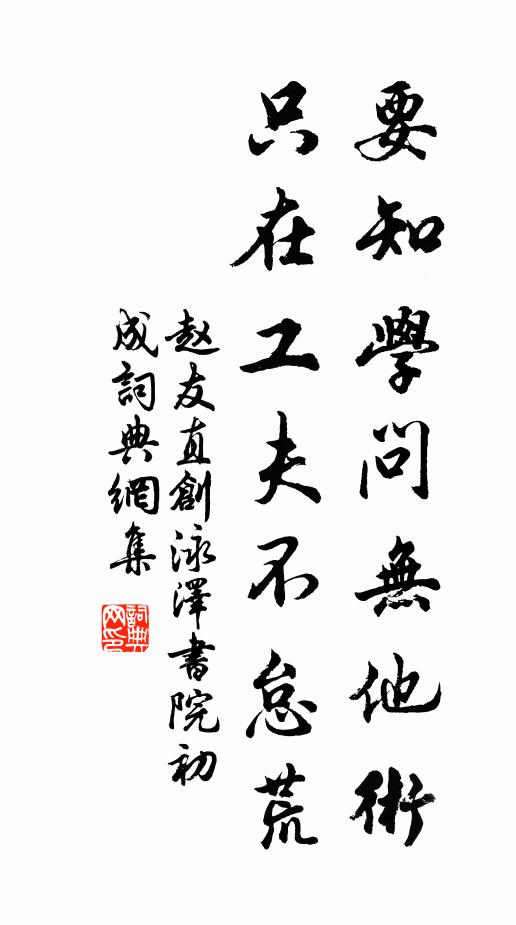 要知學問無他術
只在工夫不怠荒
赵友直創泳澤書院初
成詞典網集
詞典网印